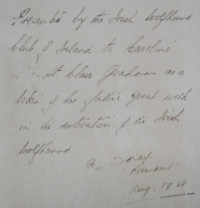 Presented by the Irish Wolfhound
Club of Ireland to Caroline
St Clair Graham as a
token of her father's great work
in the restoration of the Irish
Wolfhound
President
Aug. 19